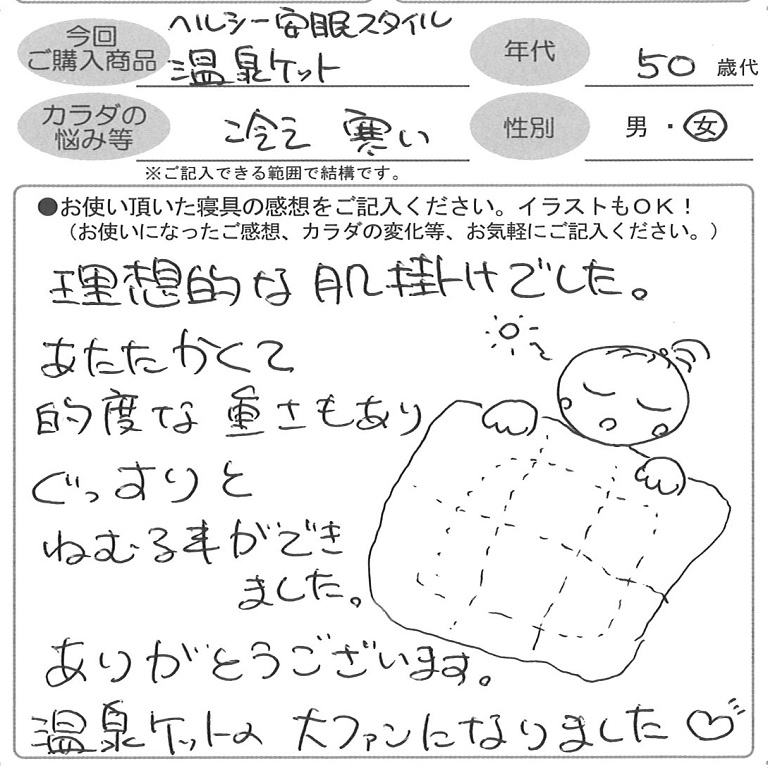 今回
ご購入商品
ヘルシー安眠スタイル
温泉ケット
年代
50 歳代
カラダの
悩み等
冷え 寒い
性別
男・女
※ご記入できる範囲で結構です。
●お使い頂いた寝具の感想をご記入ください。イラストもOK！
（お使いになったご感想、カラダの変化等、お気軽にご記入ください。）
理想的な肌掛けでした。
あたたかくて
的度な重さもあり
ぐっすりと
ねむる事ができ
ました。
ありがとうございます。
温泉ケットの 大ファンになりました♡